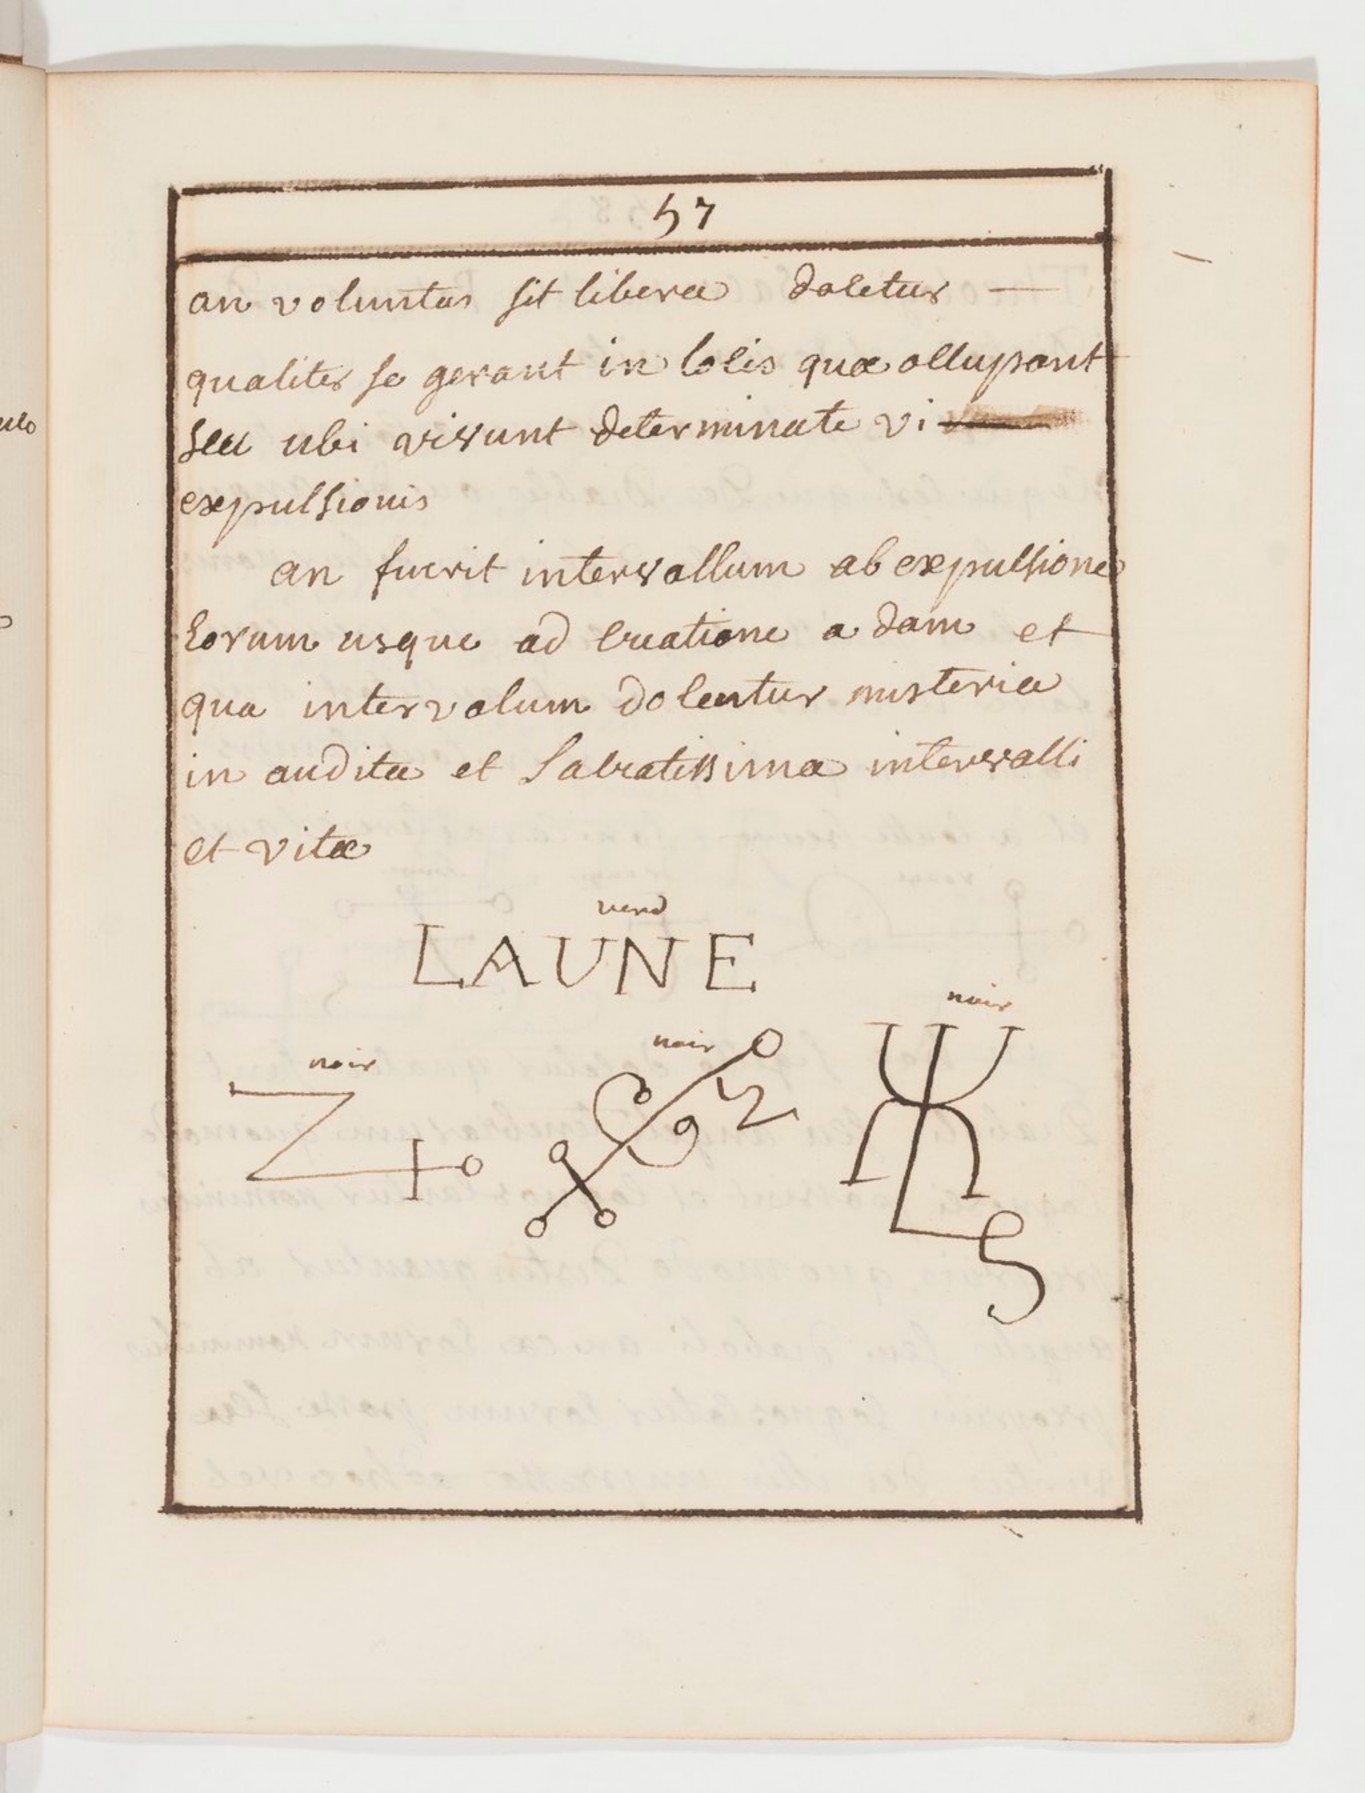 57
an voluntas sit libera docetur —
qualiter se gerant in locis quæ occupant
seu ubi vivunt determinate vi
expulsionis
an fuerit intervallum ab expulsione
eorum usque ad creatione adam et
qua intervalum docentur misteria
in audita et Sacratissima intervalli
et vitæ
verd
LAUNE
noir
noir
noir